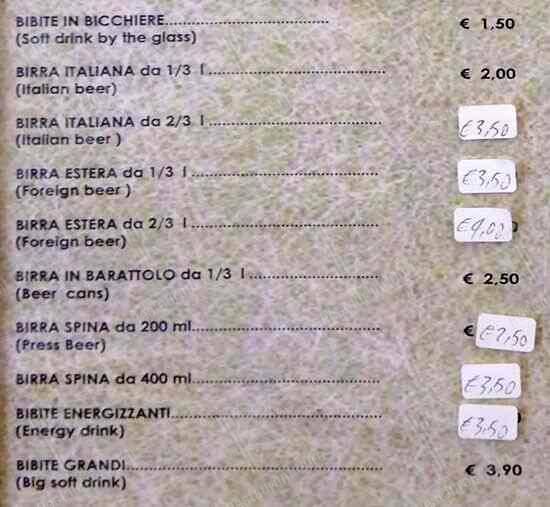 BIBITE IN BICCHIERE................................ € 1,50
(Soft drink by the glass)
BIRRA ITALIANA da 1/3 l................................... € 2,00
(Italian beer)
BIRRA ITALIANA da 2/3 l................................... €3,50
(Italian beer )
BIRRA ESTERA da 1/3 l...................................... €3,50
(Foreign beer )
BIRRA ESTERA da 2/3 l......................................
(Foreign beer)
BIRRA IN BARATTOLO da 1/3 l.......................... € 2,50
(Beer cans)
BIRRA SPINA da 200 ml...................................... € €2,50
(Press Beer)
BIRRA SPINA da 400 ml...................................... €3,50
BIBITE ENERGIZZANTI.......................................... €3,50
(Energy drink)
BIBITE GRANDI................................................... € 3,90
(Big soft drink)